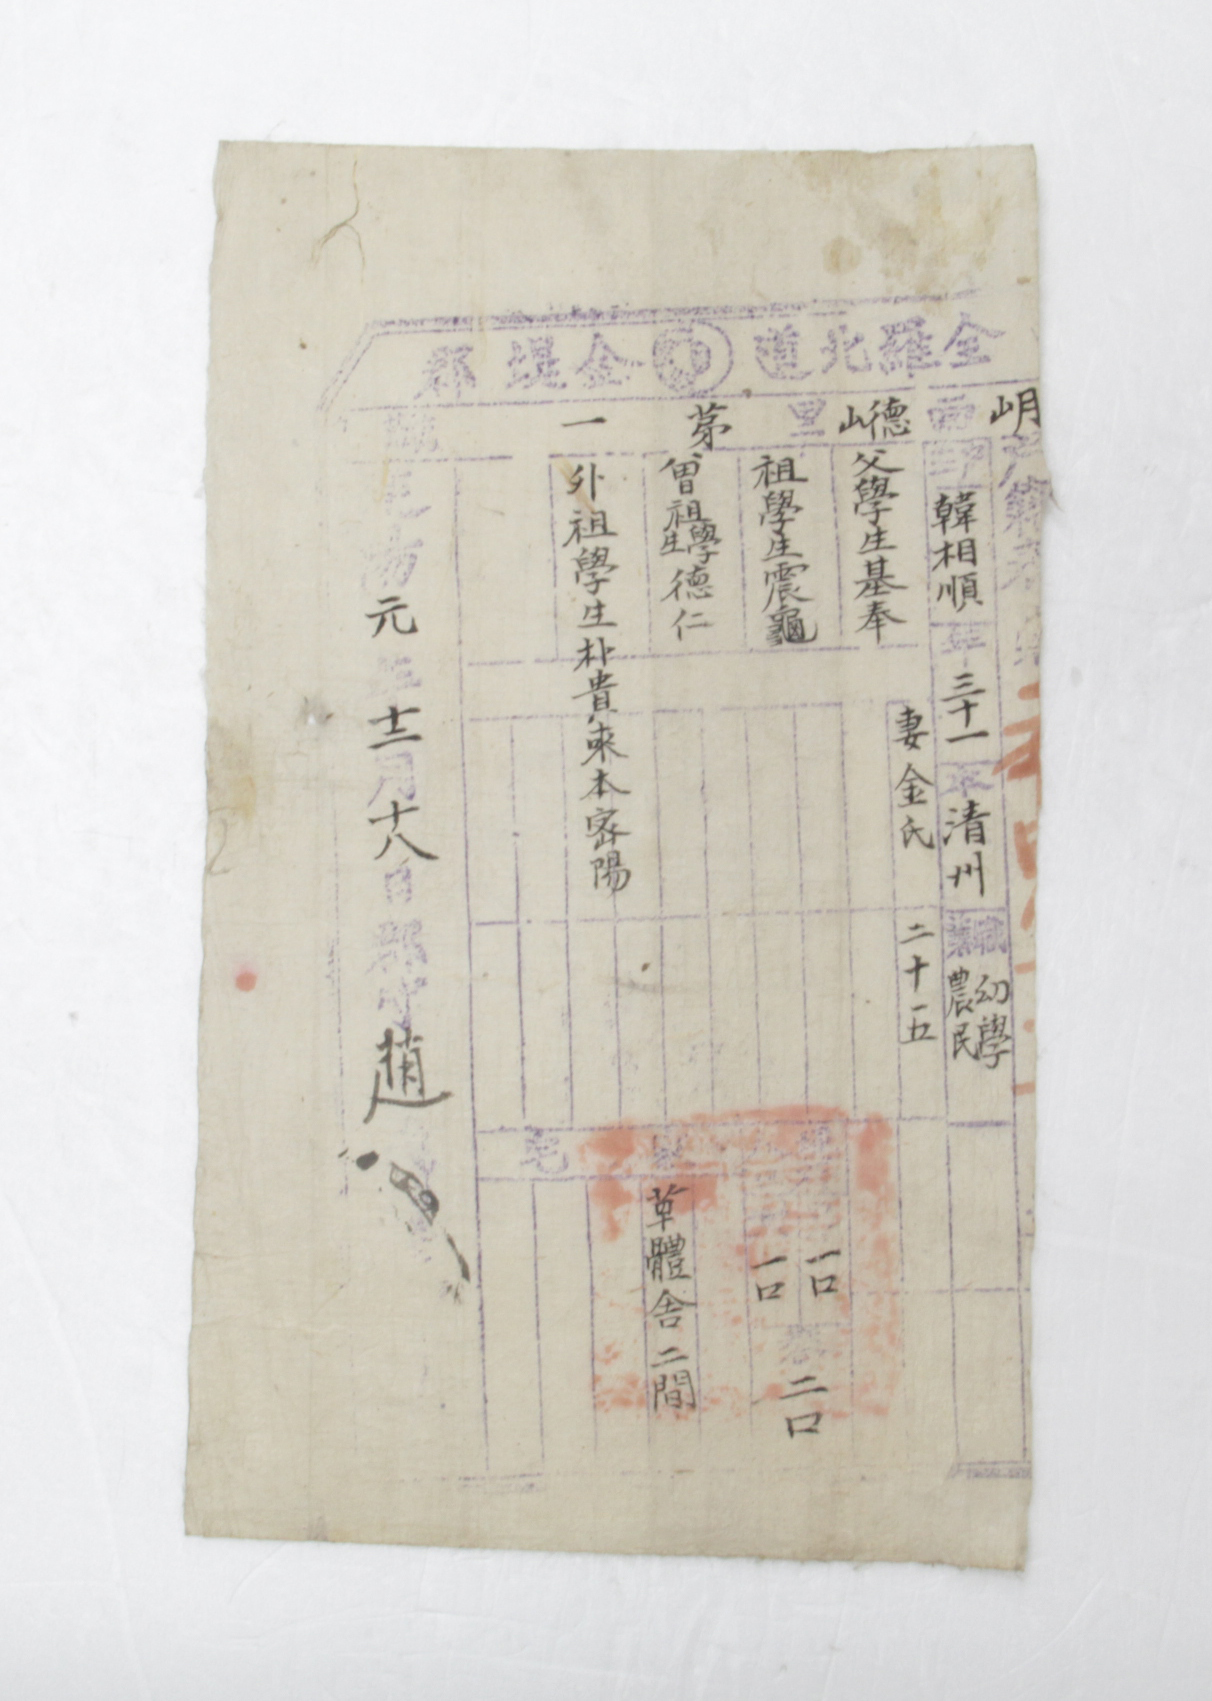 全羅北道 金堤郡
岄面德山里 第一號
戶韓相順 年三十一 本清州 職業幼學農民
父學生基奉
祖學生震龜
曾祖學生德仁
外祖學生朴貴來本密陽
妻金氏 二十五
一口
一口
二口
宅
草體舍二間
光武元年十二月十八日郡守趙